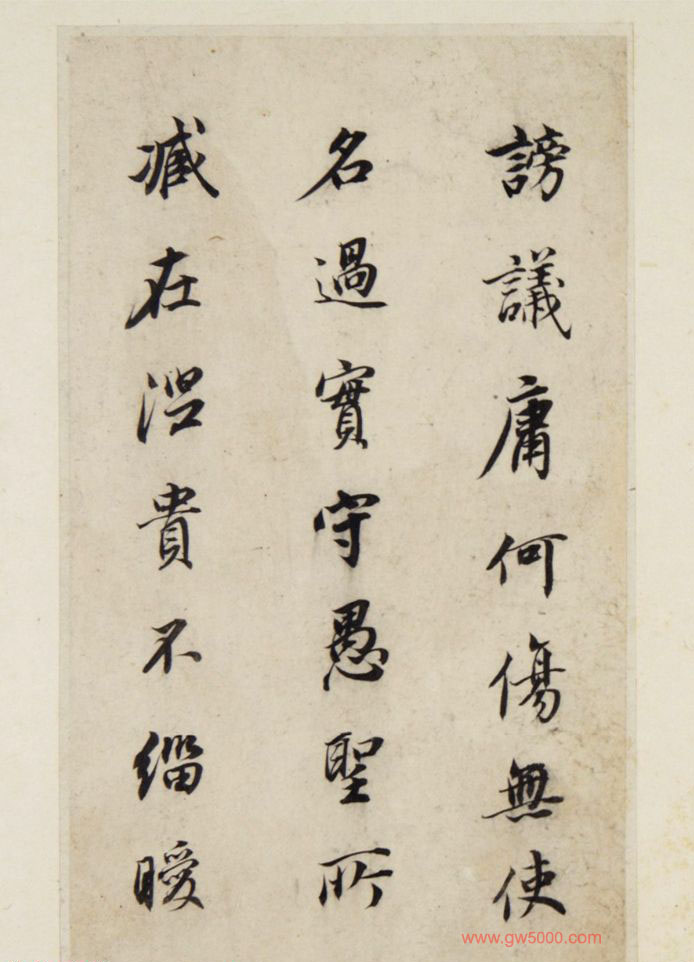 謗議庸何傷無使
名過實守愚聖所
臧在涅貴不緇曖
www.gw5000.com